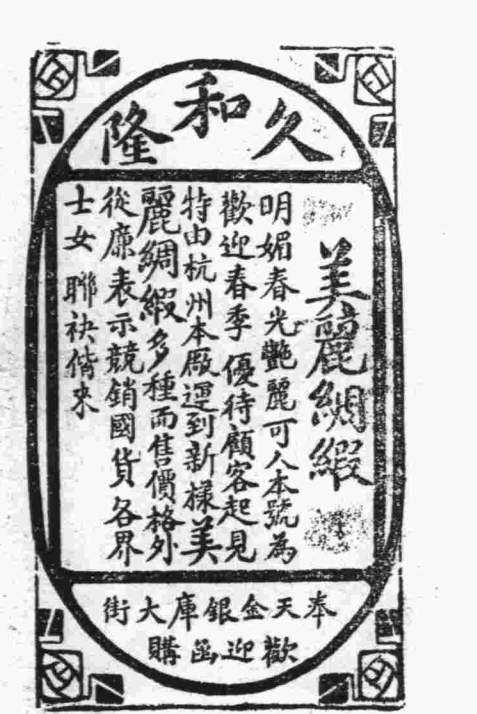 久和隆
美麗綢緞
明媚春光艷麗可人本號為
歡迎春季優待顧客起見
特由杭州本厰運到新樣美
麗綢緞多種而售價格外
從廉表示競銷國貨各界
士女聯袂偕來
奉天金銀庫大街
歡迎函購